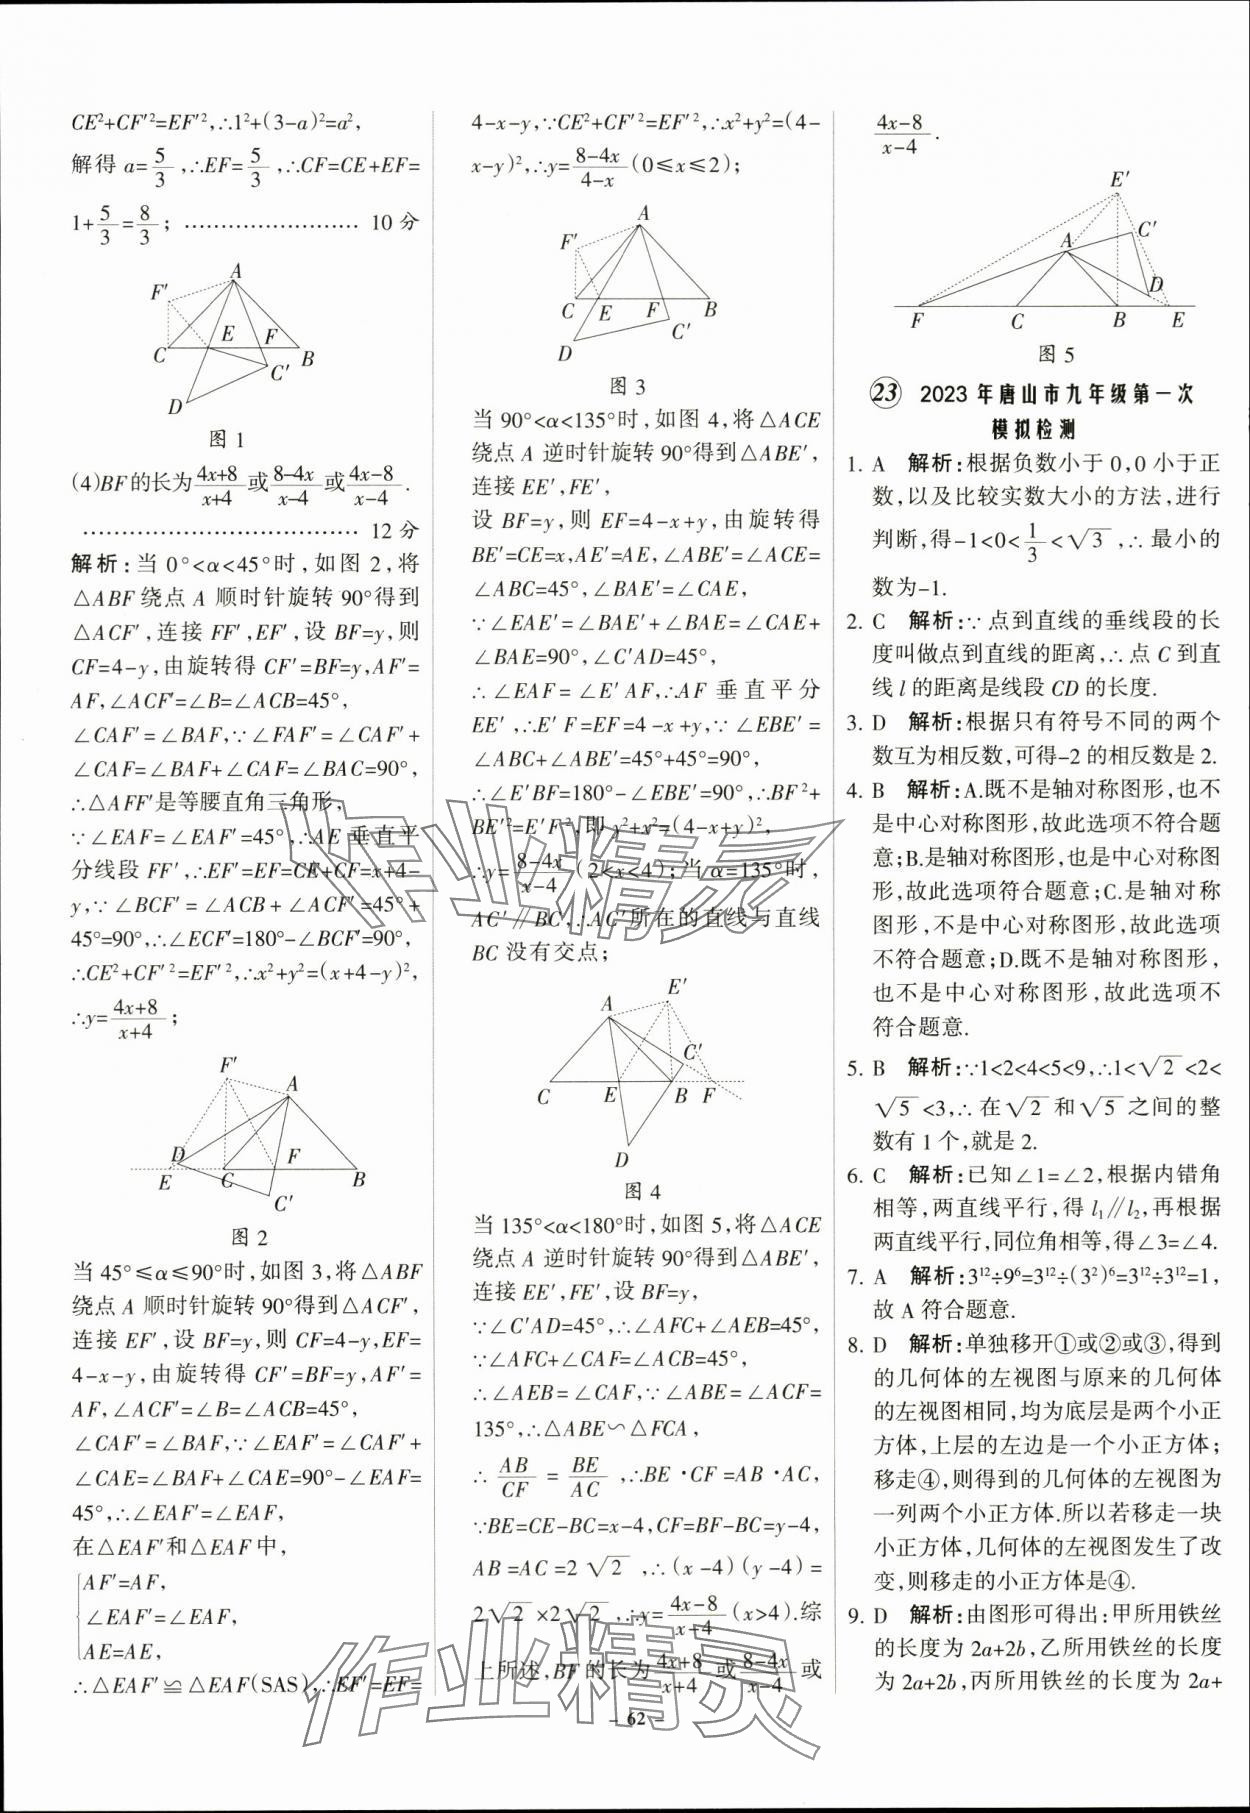 CE²+CF′²=EF′²,∴1²+(3-a)²=a²,
解得 a=5/3,∴EF=5/3,∴CF=CE+EF=
1+5/3=8/3; …………………… 10 分
A
F′
E
F
C
B
C′
D
图 1
(4)BF 的长为(4x+8)/(x+4)或(8-4x)/(x-4)或(4x-8)/(x-4).
……………………………… 12 分
解析:当 0°<α<45°时,如图 2,将
△ABF 绕点 A 顺时针旋转 90°得到
△ACF′,连接 FF′,EF′,设 BF=y,则
CF=4-y,由旋转得 CF′=BF=y,AF′=
AF,∠ACF′=∠B=∠ACB=45°,
∠CAF′=∠BAF,∵∠FAF′=∠CAF′+
∠CAF=∠BAF+∠CAF=∠BAC=90°,
∴△AFF′是等腰直角三角形,
∵∠EAF=∠EAF′=45°,∴AE 垂直平
分线段 FF′,∴EF′=EF=CE+CF=x+4-
y,∵∠BCF′=∠ACB+∠ACF′=45°+
45°=90°,∴∠ECF′=180°-∠BCF′=90°,
∴CE²+CF′²=EF′²,∴x²+y²=(x+4-y)²,
∴y=(4x+8)/(x+4);
F′
A
D
F
E
C
B
C′
图 2
当 45°≤α≤90°时,如图 3,将△ABF
绕点 A 顺时针旋转 90°得到△ACF′,
连接 EF′,设 BF=y,则 CF=4-y,EF=
4-x-y,由旋转得 CF′=BF=y,AF′=
AF,∠ACF′=∠B=∠ACB=45°,
∠CAF′=∠BAF,∵∠EAF′=∠CAF′+
∠CAE=∠BAF+∠CAE=90°-∠EAF=
45°,∴∠EAF′=∠EAF,
在△EAF′和△EAF 中,
AF′=AF,
∠EAF′=∠EAF,
AE=AE,
∴△EAF′≌△EAF(SAS),∴EF′=EF=
4-x-y,∵CE²+CF′²=EF′²,∴x²+y²=(4-
x-y)²,∴y=(8-4x)/(4-x)(0≤x≤2);
A
F′
C
E
F
B
C′
D
图 3
当 90°<α<135°时,如图 4,将△ACE
绕点 A 逆时针旋转 90°得到△ABE′,
连接 EE′,FE′,
设 BF=y,则 EF=4-x+y,由旋转得
BE′=CE=x,AE′=AE,∠ABE′=∠ACE=
∠ABC=45°,∠BAE′=∠CAE,
∵∠EAE′=∠BAE′+∠BAE=∠CAE+
∠BAE=90°,∠C′AD=45°,
∴∠EAF=∠E′AF,∴AF 垂直平分
EE′,∴E′F=EF=4-x+y,∵∠EBE′=
∠ABC+∠ABE′=45°+45°=90°,
∴∠E′BF=180°-∠EBE′=90°,∴BF²+
BE′²=E′F²,即 y²+x²=(4-x+y)²,
∴y=(8-4x)/(x-4)(2<x<4);当 α=135°时,
AC′∥BC,∴AC′所在的直线与直线
BC 没有交点;
E′
A
C′
C
E
B
F
D
图 4
当 135°<α<180°时,如图 5,将△ACE
绕点 A 逆时针旋转 90°得到△ABE′,
连接 EE′,FE′,设 BF=y,
∵∠C′AD=45°,∴∠AFC+∠AEB=45°,
∵∠AFC+∠CAF=∠ACB=45°,
∴∠AEB=∠CAF,∵∠ABE=∠ACF=
135°,∴△ABE∽△FCA,
∴AB/CF=BE/AC,∴BE·CF=AB·AC,
∵BE=CE-BC=x-4,CF=BF-BC=y-4,
AB=AC=2√2,∴(x-4)(y-4)=
2√2×2√2,∴y=(4x-8)/(x-4)(x>4).综
上所述,BF 的长为(4x+8)/(x+4)或(8-4x)/(x-4)或
(4x-8)/(x-4).
E′
C′
A
D
F
C
B
E
图 5
23 2023 年唐山市九年级第一次
模拟检测
1. A 解析:根据负数小于 0,0 小于正
数,以及比较实数大小的方法,进行
判断,得-1<0<1/3<√3,∴最小的
数为-1.
2. C 解析:∵点到直线的垂线段的长
度叫做点到直线的距离,∴点 C 到直
线 l 的距离是线段 CD 的长度.
3. D 解析:根据只有符号不同的两个
数互为相反数,可得-2 的相反数是 2.
4. B 解析:A.既不是轴对称图形,也不
是中心对称图形,故此选项不符合题
意;B.是轴对称图形,也是中心对称图
形,故此选项符合题意;C.是轴对称
图形,不是中心对称图形,故此选项
不符合题意;D.既不是轴对称图形,
也不是中心对称图形,故此选项不
符合题意.
5. B 解析:∵1<2<4<5<9,∴1<√2<2<
√5<3,∴在√2和√5之间的整
数有 1 个,就是 2.
6. C 解析:已知∠1=∠2,根据内错角
相等,两直线平行,得 l₁∥l₂,再根据
两直线平行,同位角相等,得∠3=∠4.
7. A 解析:3¹²÷9⁶=3¹²÷(3²)⁶=3¹²÷3¹²=1,
故 A 符合题意.
8. D 解析:单独移开①或②或③,得到
的几何体的左视图与原来的几何体
的左视图相同,均为底层是两个小正
方体,上层的左边是一个小正方体;
移走④,则得到的几何体的左视图为
一列两个小正方体.所以若移走一块
小正方体,几何体的左视图发生了改
变,则移走的小正方体是④.
9. D 解析:由图形可得出:甲所用铁丝
的长度为 2a+2b,乙所用铁丝的长度
为 2a+2b,丙所用铁丝的长度为 2a+
- 62 -
作业精灵
作业精灵